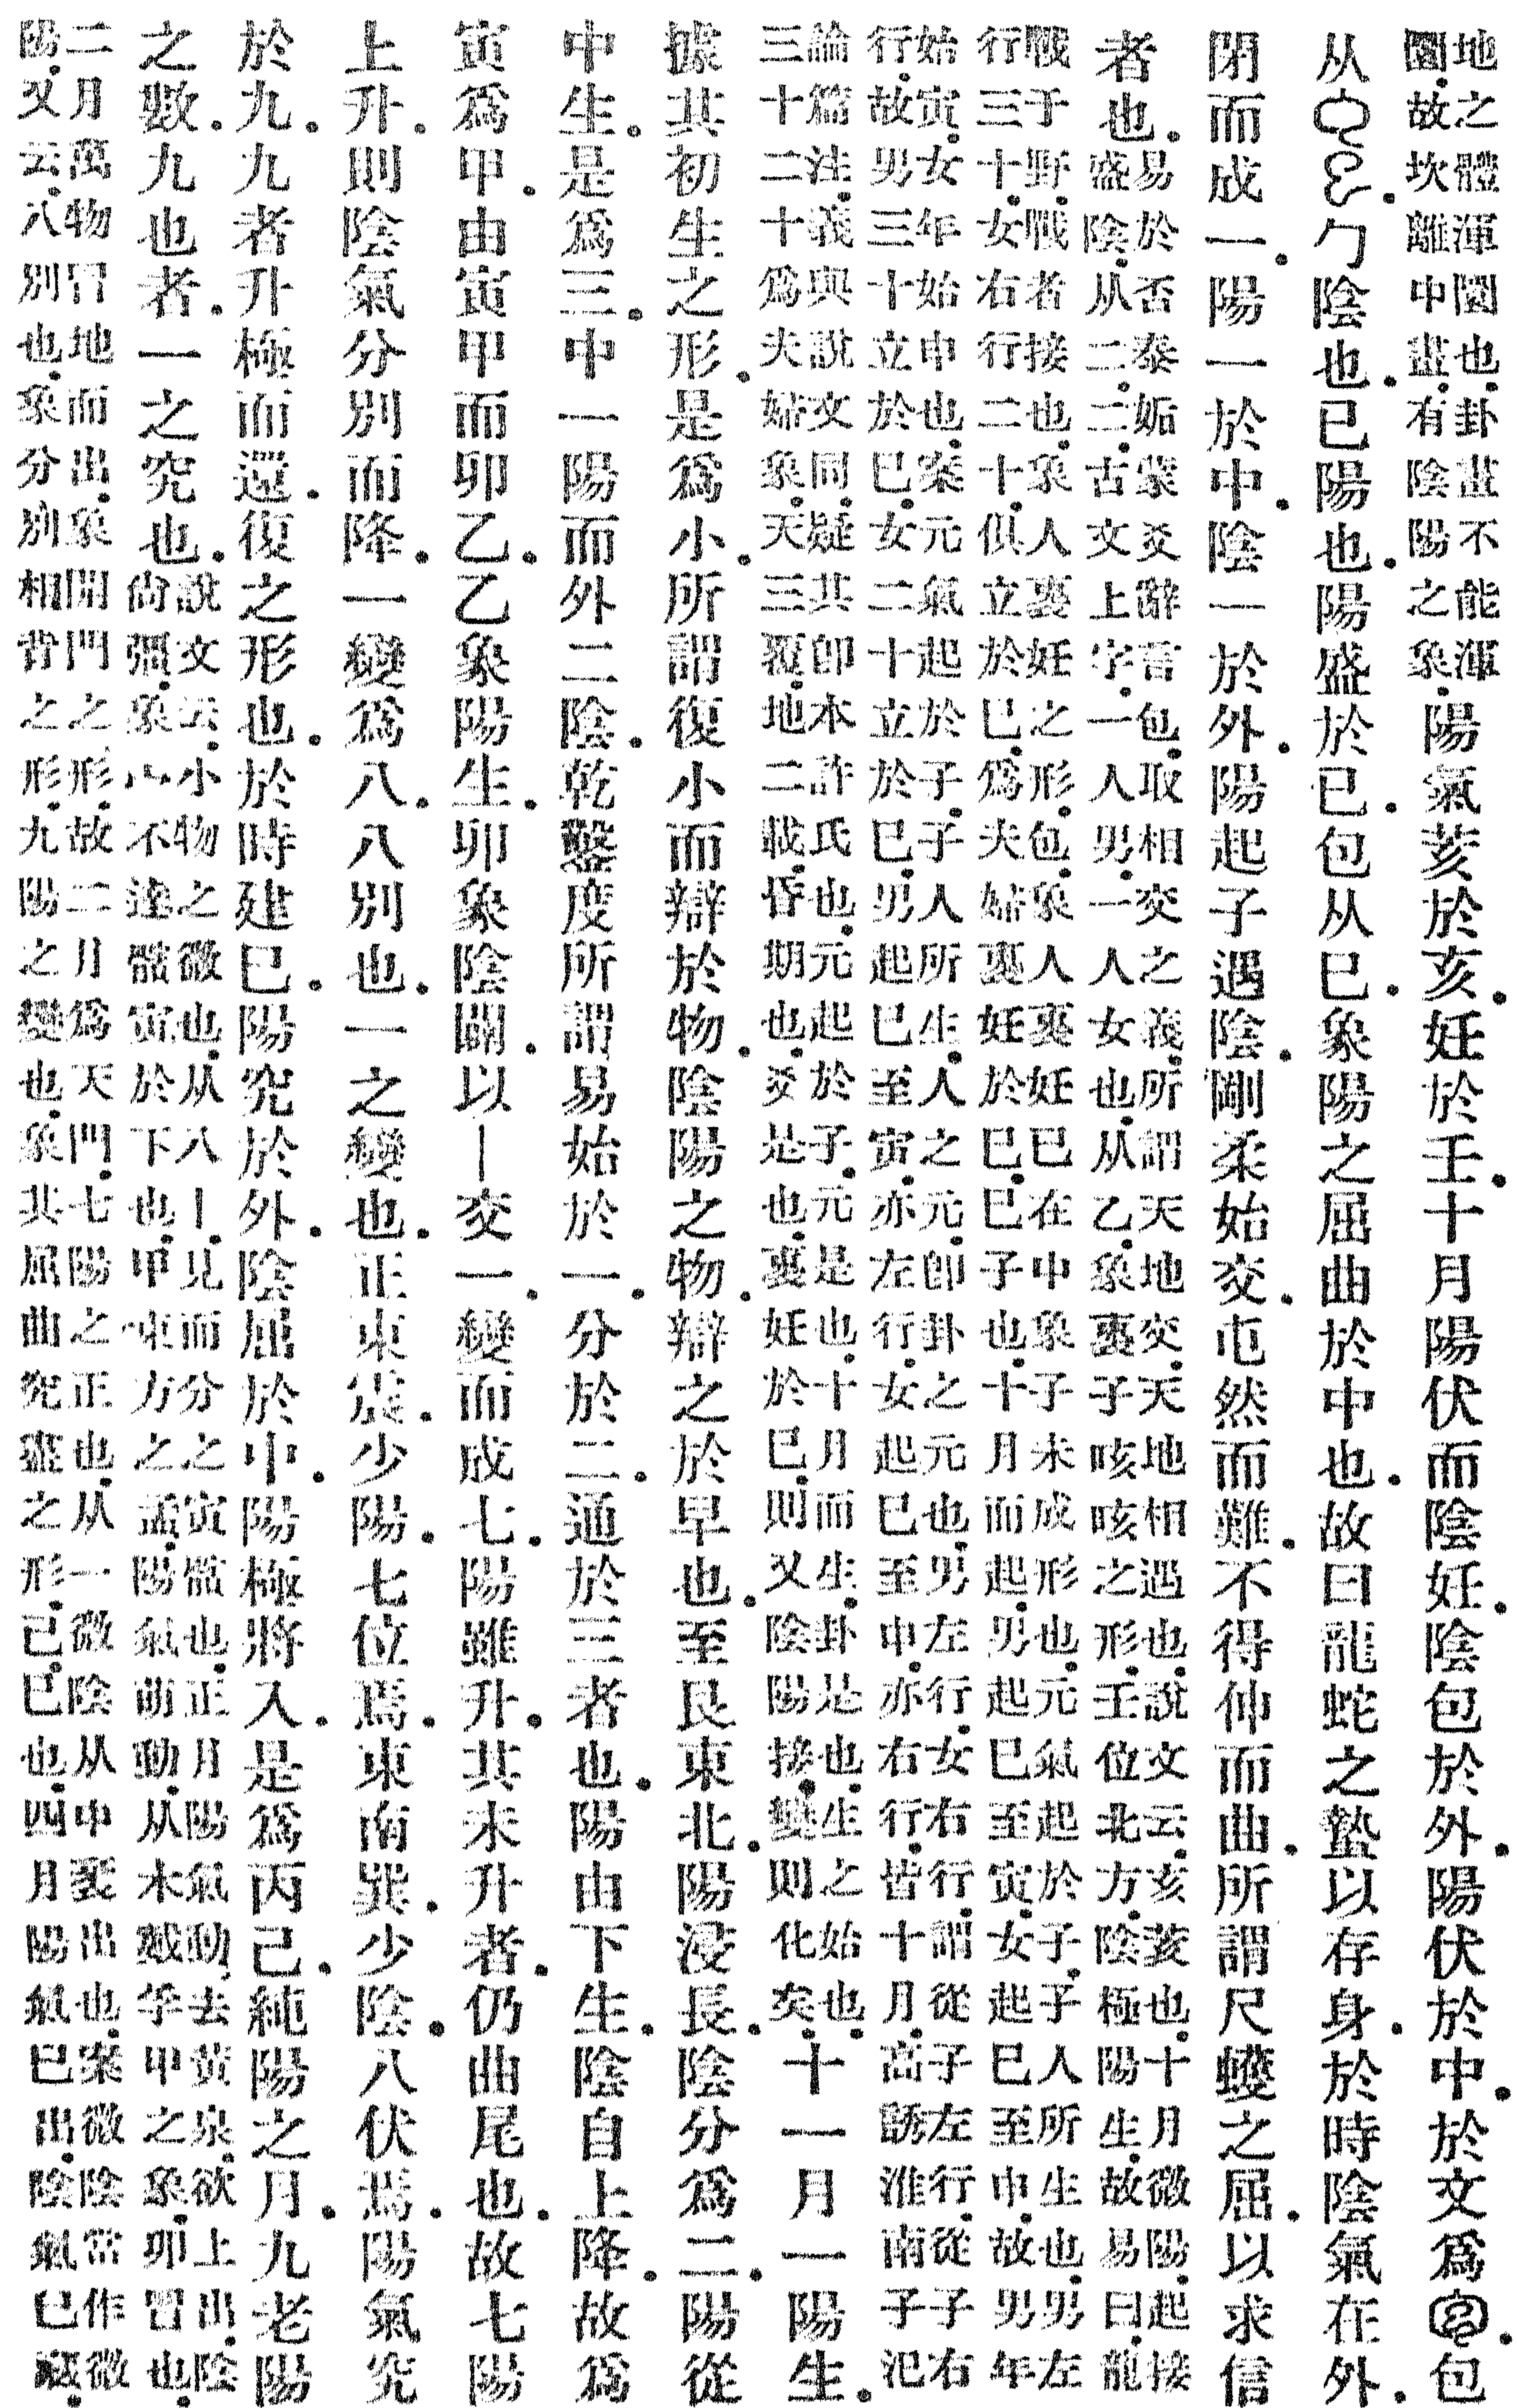 地之體渾圜也卦畫不能渾
圜故坎離中畫有陰陽之象
陽氣荄於亥。妊於壬。十月陽伏而陰妊。陰包於外。陽伏於中。於文爲。包
从。勹陰也。巳陽也。陽盛於巳。包从巳。象陽之屈曲於中也。故曰龍蛇之蟄以存身。於時陰氣在外。
閉而成一。陽一於中。陰一於外。陽起子遇陰。剛柔始交。屯然而難。不得伸而曲。所謂尺蠖之屈。以求信
者也。
易於否泰姤蒙爻辭言包。取相交之義。所謂天地交。天地相遇也。說文云。亥荄也。十月微陽。起接
盛陰。从二。二。古文上字。一人男。一人女也。从乙。象裹子咳咳之形。壬位北方。陰極陽生。故易曰。龍
戰于野。戰者接也。象人裹妊之形。包。象人裹妊。巳在中。象子未成形也。元氣起於子。子人所生也。男左
行三十。女右行二十。俱立於巳。爲夫婦裹妊於巳。巳子也。十月而起。男起巳至寅。女起巳至申。故男年
始寅。女年始申也。案元氣起於子。子人所生。人之元。卽卦之元也。男左行。女右行。謂從子左行。從子右
行。故男三十立於巳。女二十立於巳。男起巳至寅。亦左行。女起巳至申。亦右行。皆十月。高誘淮南子氾
論篇注。義與說文同。疑其卽本許氏也。元起於子。元是也。十月而生。卦是也。生之始也。
三十二十爲夫婦。象天三覆。地二載。昏期也。爻是也。裹妊於巳。則又陰陽接。變則化矣。
十一月一陽生。
據其初生之形。是爲小。所謂復小而辯於物。陰陽之物。辯之於早也。至艮東北。陽浸長。陰分爲二。陽從
中生。是爲三。中一陽而外二陰。乾鑿度所謂易始於一。分於二。通於三者也。陽由下生。陰自上降。故爲
寅爲甲。由寅甲而卯乙。乙象陽生。卯象陰闢。以丨交一。變而成七。陽雖升。其未升者。仍曲尾也。故七陽
上升。則陰氣分別而降。一變爲八。八別也。一之變也。正東震。少陽。七位焉。東南巽。少陰。八伏焉。陽氣究
於九。九者升極而還。復之形也。於時建巳。陽究於外。陰屈於中。陽極將入。是爲丙己。純陽之月。九老陽
之數。九也者。一之究也。
說文云。小物之微也。从八丨。見而分之。寅髕也。正月陽氣動。去黃泉。欲上出。陰
尙彊。象宀不達髕寅於下也。甲東方之孟。陽氣萌動。从木戴孚甲之象。卯冒也。
二月萬物冒地而出。象開門之形。故二月爲天門。七陽之正也。从一。微陰从中衺出也。案微陰陰當作微
陽。又云。八別也。象分別相背之形。九陽之變也。象其屈曲究盡之形。已。巳也。四月陽氣巳出。陰氣巳藏。